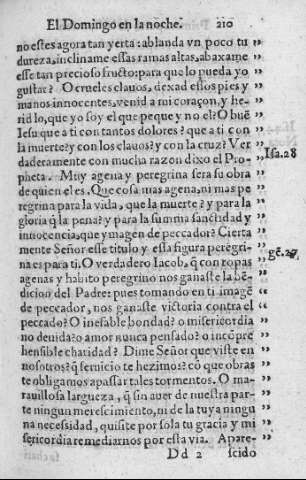 El Domingo en la noche. 210
no estes agora tan yerta: ablanda vn poco tu
dureza, incliname essas ramas altas, abaxame
esse tan precioso fructo: para que lo pueda yo
gustar? O crueles clauos, dexad essos pies y
manos innocentes, venid a mi coraçon, y he-
rid lo, que yo soy el que peque y no el? O buẽ
Iesu que a ti con tantos dolores? que a ti con
la muerte? y con los clauos? y con la cruz? Ver
daderamente con mucha razon dixo el Pro-
pheta. Muy agena y peregrina sera su obra
de quien el es. Que cosa mas agena, ni mas pe
regrina para la vida, que la muerte? y para la
gloria q̃ la pena? y para la summa sanctidad y
innocencia, que ymagen de peccador? Cierta
mente Señor esse titulo y essa figura peregri-
na es para ti. O verdadero Iacob, q̃ con ropas
agenas y habito peregrino nos ganaste la bẽ-
dicion del Padre: pues tomando en ti imagẽ
de peccador, nos ganaste victoria contra el
peccado? O inefable bondad? o misericordia
no deuida? o amor nunca pensado? o incõpre
hensible charidad? Dime Señor que viste en
nosotros? q̃ seruicio te hezimos? cõ que obras
te obligamos a passar tales tormentos. O ma-
rauillosa largueza, q̃ sin auer de nuestra par-
te ningun merescimiento, ni de la tuya ningu
na necessidad, quisite por sola tu gracia y mi
sericordia remediarnos por esta via. Apare-
Dd 2 scido
Isa.28
gẽ.27.